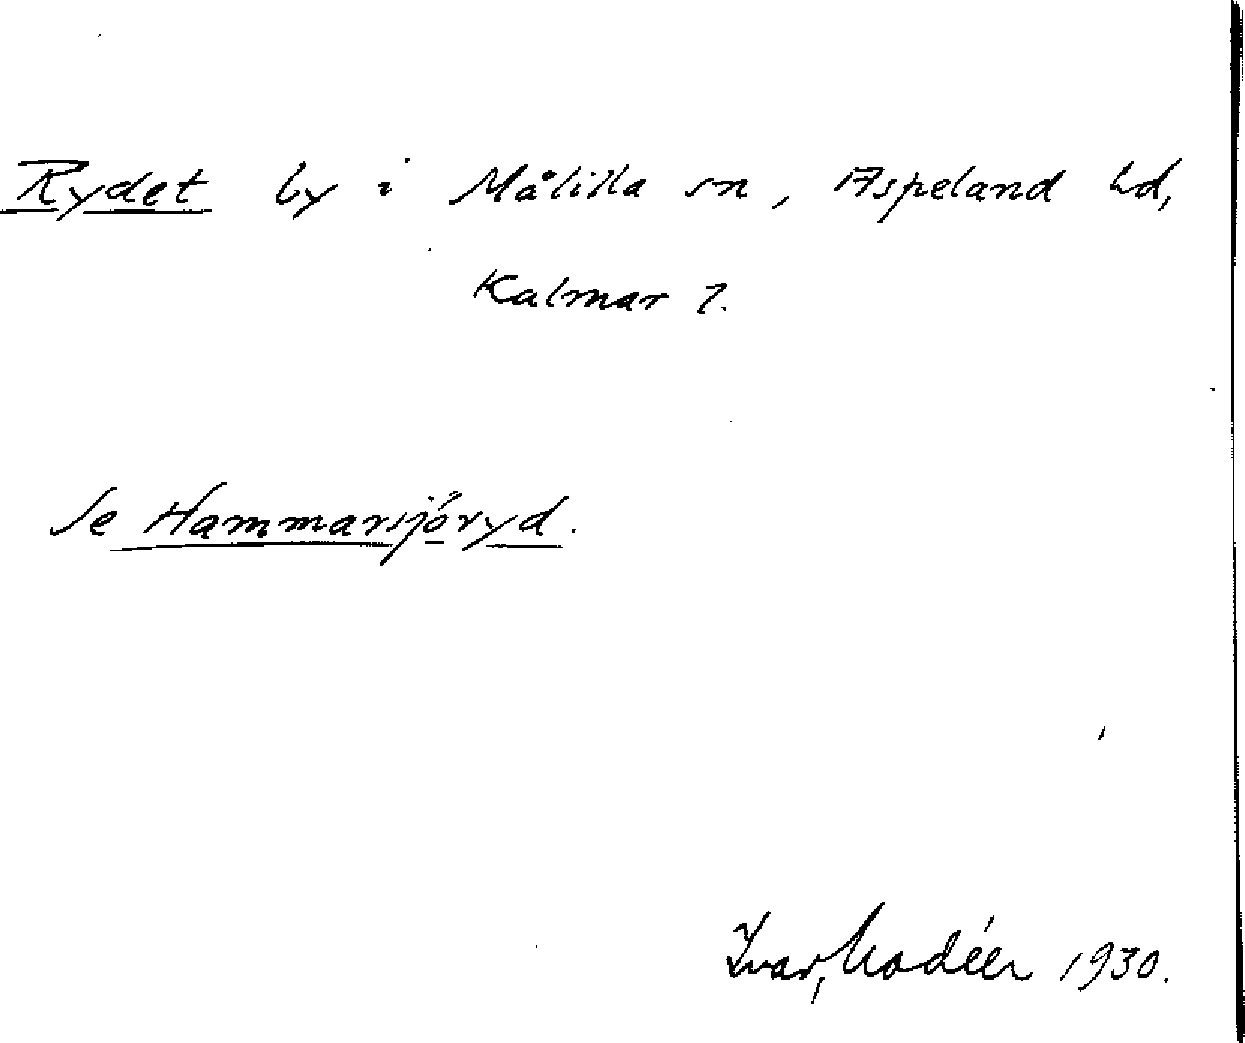 Rydet by i Målilla sn, Aspeland hd,
Kalmar l.
Se Hammarsjöryd.
Ivar Modéer 1930.